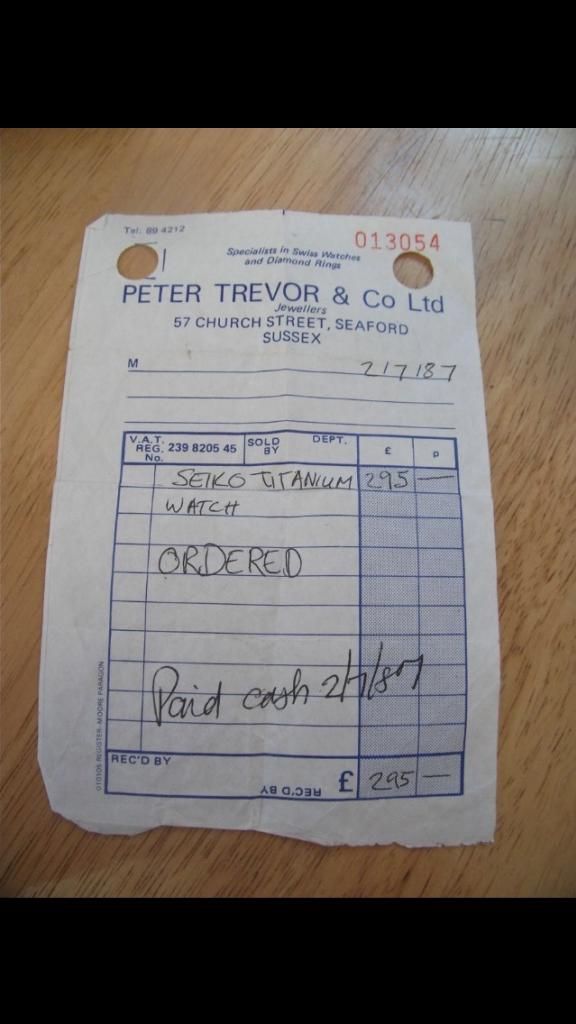 Tel: 89 4212
013054
Specialists in Swiss Watches
and Diamond Rings
PETER TREVOR & Co Ltd
Jewellers
57 CHURCH STREET, SEAFORD
SUSSEX
M 2/7/87
V.A.T. REG. No. 239 8205 45 SOLD BY DEPT. £ p
SEIKO TITANIUM 295 —
WATCH
ORDERED
Paid cash 2/7/87
REC'D BY
REC'D BY £ 295 —
REGISTER-MOORE PARAGON